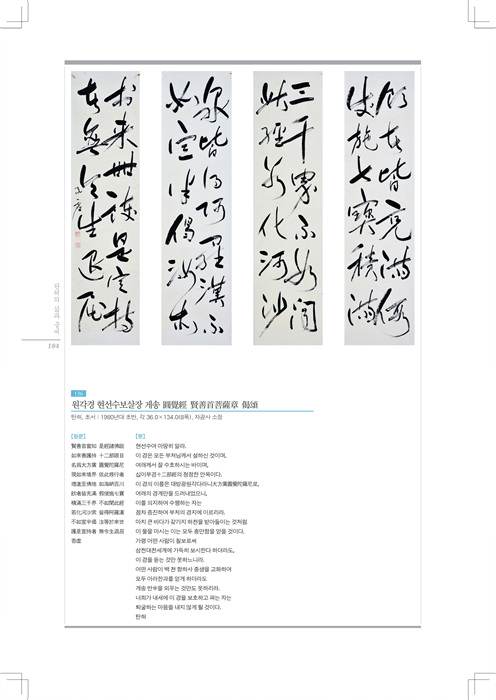 飮者皆充滿假
使施七寶積滿
三千界不如聞
此經若化河沙
衆皆得阿羅漢不
如宣半偈汝等
於來世護是宣持
者無令生退屈
呑虛
탄허의 삶과 글씨
184
136
원각경 현선수보살장 게송 圓覺經 賢善首菩薩章 偈頌
탄허, 초서 | 1980년대 초반, 각 36.0×134.0(8폭), 자광사 소장
【원문】
賢善首當知 是經諸佛說
如來善護持 十二部眼目
名爲大方廣 圓覺陀羅尼
現如來境界 依此修行者
增進至佛地 如海納百川
飮者皆充滿 假使施七寶
積滿三千界 不如聞此經
若化河沙衆 皆得阿羅漢
不如宣半偈 汝等於來世
護是宣持者 無令生退屈
呑虛
【뜻】
현선수여 마땅히 알라.
이 경은 모든 부처님께서 설하신 것이며,
여래께서 잘 수호하시는 바이며,
십이부경十二部經의 청정한 안목이다.
이 경의 이름은 대방광원각다라니大方廣圓覺陀羅尼로,
여래의 경계만을 드러내었으니,
이를 의지하여 수행하는 자는
점차 증진하여 부처의 경지에 이르리라.
마치 큰 바다가 갖가지 하천을 받아들이는 것처럼
이 물을 마시는 이는 모두 충만함을 얻을 것이다.
가령 어떤 사람이 칠보로써
삼천대천세계에 가득히 보시한다 하더라도,
이 경을 듣는 것만 못하느니라.
어떤 사람이 백 천 항하사 중생을 교화하여
모두 아라한과를 얻게 하더라도
게송 반수를 외우는 것만도 못하리라.
너희가 내세에 이 경을 보호하고 펴는 자는
퇴굴하는 마음을 내지 않게 될 것이다.
탄허